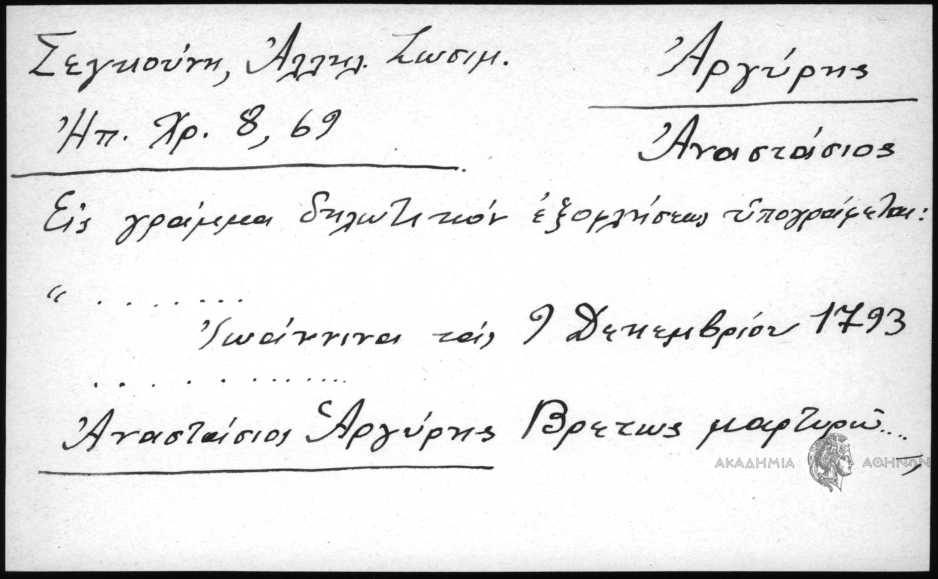 Σεγκούνη, Ἀλληλ. Ζωσιμ.
Ἠπ. Χρ. 8, 69
Ἀργύρης
Ἀναστάσιος
Εἰς γράμμα δηλωτικόν ἐξοφλήσεως ὑπογράφεται:
“ ........
Ἰωάννινα τάς 9 Δεκεμβρίου 1793
..........
Ἀναστάσιος Ἀργύρης Βρετως μαρτυρῶ....”
ΑΚΑΔΗΜΙΑ ΑΘΗΝΩΝ